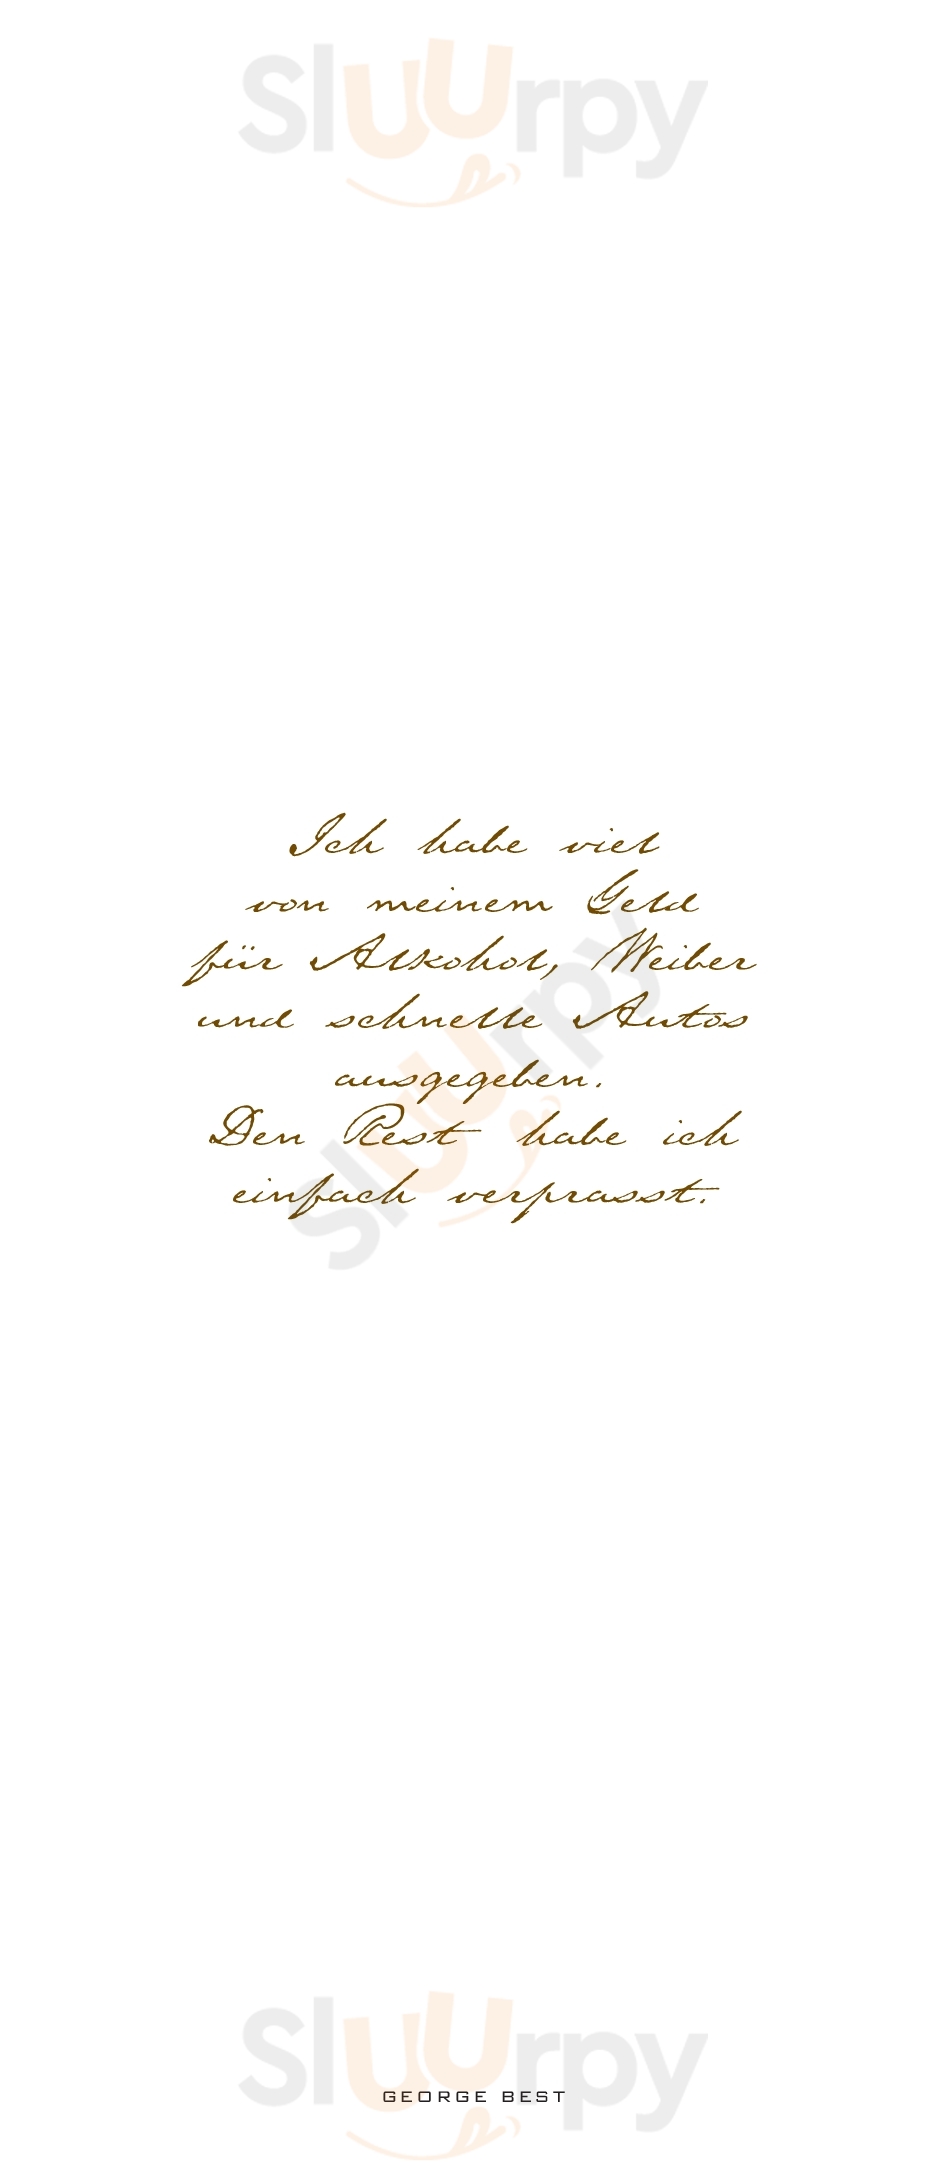 Sluurpy
Ich habe viel
von meinem Geld
für Alkohol, Weiber
und schnelle Autos
ausgegeben.
Den Rest habe ich
einfach verprasst.
Sluurpy
Sluurpy
GEORGE BEST